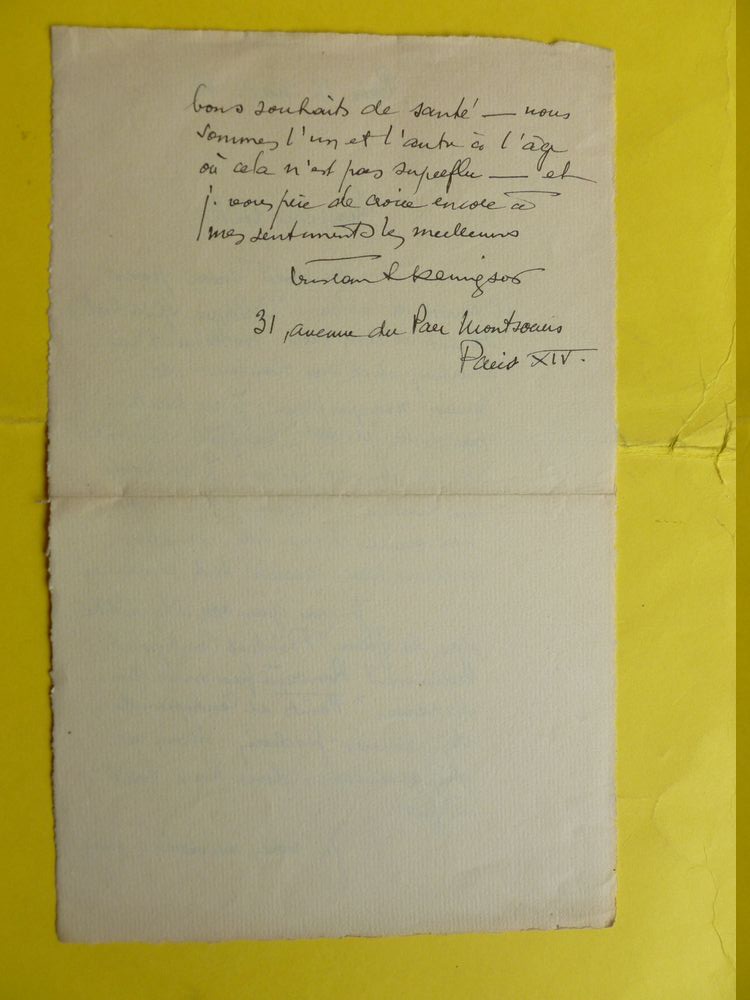 bons souhaits de santé — nous
sommes l'un et l'autre à l'âge
où cela n'est pas superflu — et
je vous prie de croire encore à
mes sentiments les meilleurs
Tristan Klingsor
31, avenue du Parc Montsouris
Paris XIV.